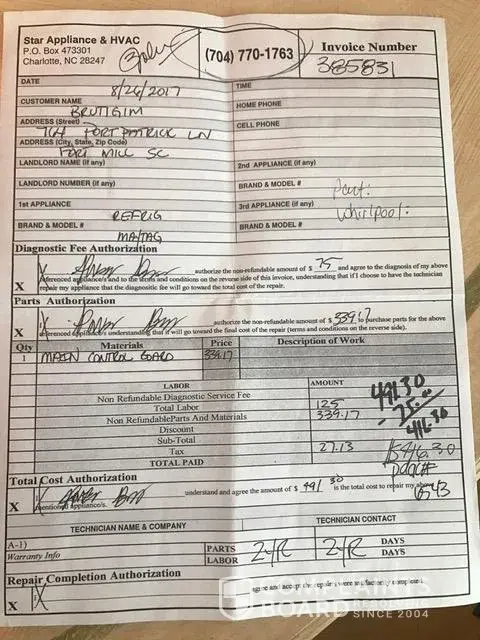 Star Appliance & HVAC
P.O. Box 473301
Charlotte, NC 28247
(704) 770-1763
Invoice Number
385831
DATE
8/26/2017
TIME
CUSTOMER NAME
BRUTIGIM
HOME PHONE
ADDRESS (Street)
764 FORT PATRICK LN
CELL PHONE
ADDRESS (City, State, Zip Code)
FORT MILL SC
LANDLORD NAME (if any)
2nd APPLIANCE (if any)
LANDLORD NUMBER (if any)
BRAND & MODEL #
Part:
1st APPLIANCE
REFRIG
3rd APPLIANCE (if any)
Whirlpool:
BRAND & MODEL #
MAYTAG
BRAND & MODEL #
Diagnostic Fee Authorization
X I authorize the non-refundable amount of $ 75 and agree to the diagnosis of my above
referenced appliance/s and to the terms and conditions on the reverse side of this invoice, understanding that if I choose to have the technician
repair my appliance that the diagnostic fee will go toward the total cost of the repair.
Parts Authorization
X I authorize the non-refundable amount of $ 339.17 to purchase parts for the above
referenced appliance/s understanding that it will go toward the final cost of the repair (terms and conditions on the reverse side).
Qty Materials Price Description of Work
1 MAIN CONTROL BOARD 339.17
LABOR AMOUNT
Non Refundable Diagnostic Service Fee
Total Labor 125
Non Refundable Parts And Materials 339.17
Discount
Sub-Total
Tax 27.13
TOTAL PAID
491.30
- 75.00
416.30
$416.30
6543
Total Cost Authorization
X I understand and agree the amount of $ 491 30 is the total cost to repair my above
mentioned appliance/s.
TECHNICIAN NAME & COMPANY
TECHNICIAN CONTACT
A-1)
Warranty Info
PARTS 2YR 2YR DAYS
LABOR DAYS
Repair Completion Authorization
X I agree and accept the repairs were satisfactorily completed.
BOARD
SINCE 2004